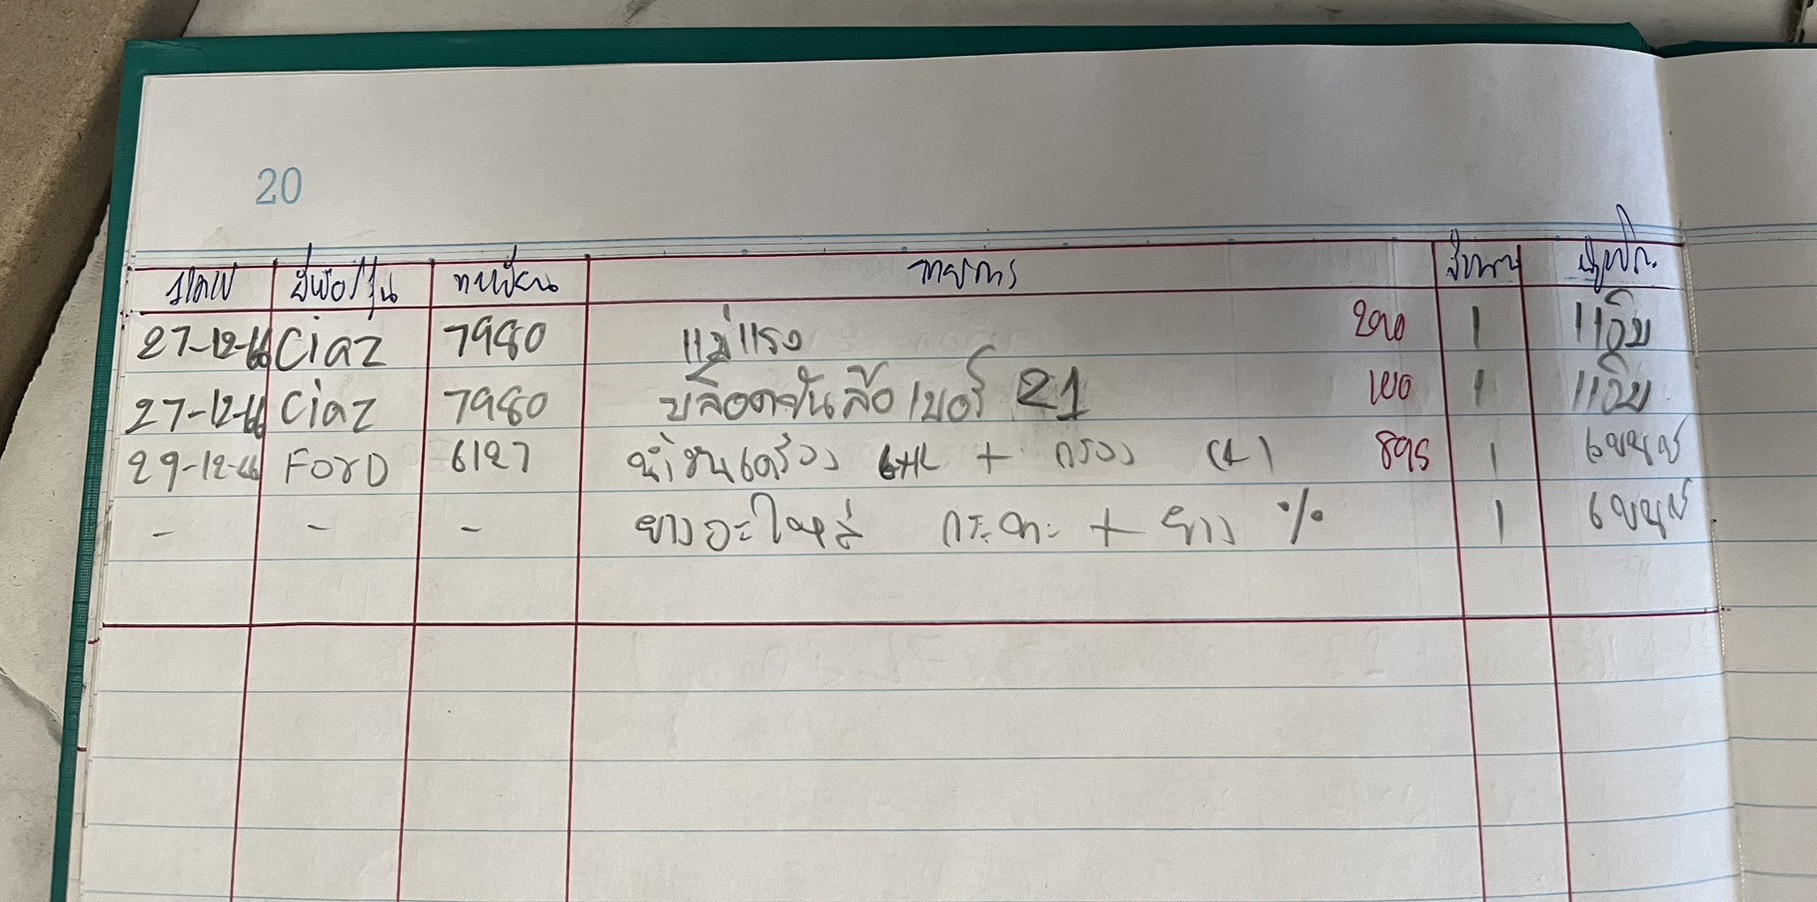 20
วดป ยี่ห้อ/รุ่น ทะเบียน รายการ จำนวน ผู้เบิก
27-12-66 Ciaz 7980 แม่แรง 290 1 แอ๊ม
27-12-66 Ciaz 7980 บล็อคขันล้อ เบอร์ 21 100 1 แอ๊ม
29-12-66 FORD 6127 น้ำมันเครื่อง 6+1L + กรอง (1) 895 1
- - - ยางอะไหล่ กระทะ + ยาง % 1